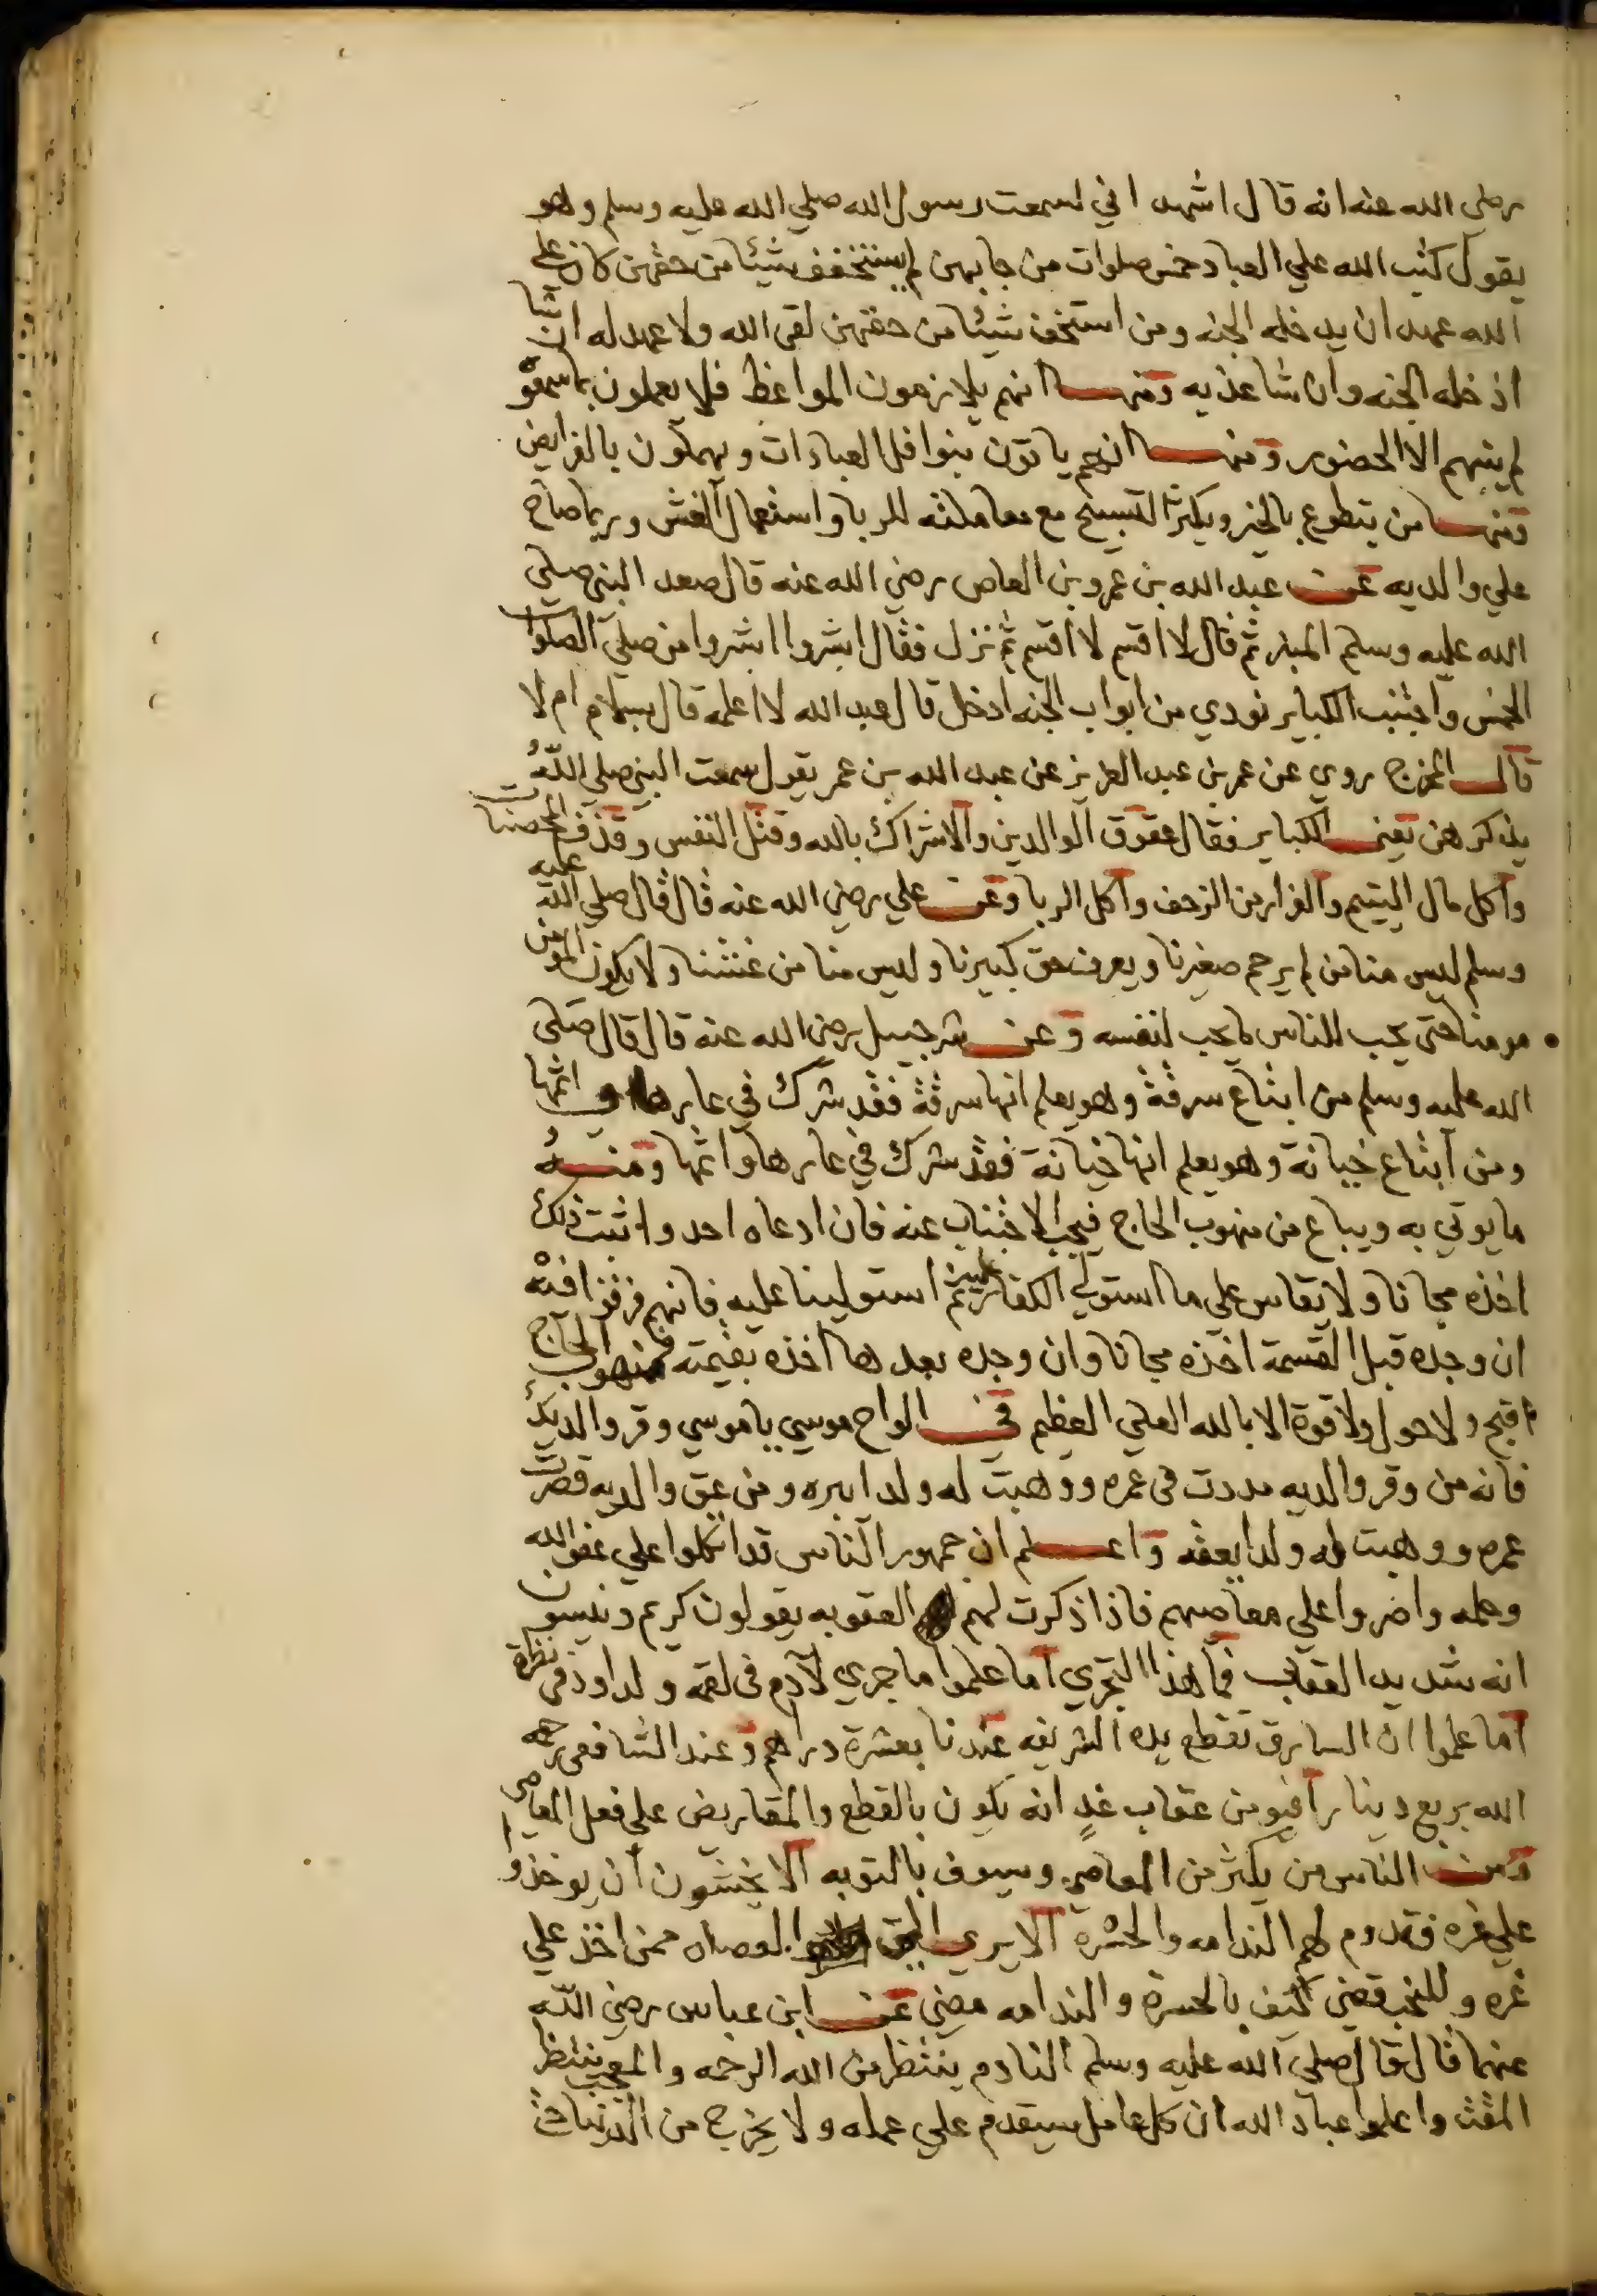 رضي الله عنه انه قال اشهد اني لسمعت رسول الله صلي الله عليه وسلم وهو
يقول كتب الله علي العباد خمس صلوات من جا بهن لم يستخفف شيئا من حقهن كان علي
الله عهد ان يدخله الجنه ومن استخف شيئا من حقهن لقي الله ولا عهد له ان شا
ادخله الجنه وان شا عذبه ومنها انهم يلازمون المواعظ فلا يعملون بما سمعوه
لم ينبهم الا الحضور ومنها انهم ياتون بنوافل العبادات ويهملون بالفرايض
ومنها من يتطوع بالخير ويكثر التسبيح مع معاملته للربا واستعمال الغش وربما صاح
علي والديه عن عبد الله بن عمرو بن العاص رضي الله عنه قال صعد النبي صلي
الله عليه وسلم المنبر ثم قال لا اقسم لا اقسم ثم نزل فقال ابشروا ابشروا من صلي الصلوات
الخمس واجتنب الكباير نودي من ابواب الجنه ادخل قال عبد الله لا اعلمه قال بسلام ام لا
قال المخرج روي عن عمر بن عبد العزيز عن عبد الله بن عمر يقول سمعت النبي صلي الله
يذكر هن يعني الكباير فقال عقوق الوالدين والاشراك بالله وقتل النفس وقذف المحصنات
واكل مال اليتيم والفرار من الزحف واكل الربا وعن علي رضي الله عنه قال قال صلي الله عليه
وسلم ليس منا من لم يرحم صغيرنا ويعرف حق كبيرنا وليس منا من غشنا ولا يكون المومن
مومنا حتى يحب للناس ما يحب لنفسه وعن شرحبيل رضي الله عنه قال قال صلى
الله عليه وسلم من ابتاع سرقة وهو يعلم انها سرقة فقد شرك في عارها واثمها
ومن ابتاع خيانة وهو يعلم انها خيانة فقد شرك في عارها واثمها ومنه
ما يوتي به ويباع من منهوب الحاج فيجب الاجتناب عنه فان ادعاه احد واثبت ذلك
اخذه مجانا ولا يقاس علي ما استولي الكفار ثم استولينا عليه فانهم فرقوا فيه
ان وجده قبل القسمة اخذه مجانا وان وجده بعدها اخذه بقيمته فمنهوب الحاج
اقبح ولا حول ولا قوة الا بالله العلي العظيم في الواح موسي يا موسي وقر والديك
فانه من وقر والديه مددت في عمره ووهبت له ولدا يبره ومن عق والديه قصرت
عمره ووهبت له ولدا يعقه واعلم ان جمهور الناس قد اتكلوا علي عفو الله
وحلمه واصروا علي معاصيهم فاذا ذكرت لهم العقوبه يقولون كريم وينسون
انه شديد العقاب فما هذا التجري اما علموا ما جري لآدم في لقمه ولداود في نظرة
اما علموا ان السارق تقطع يده الشريفه عندنا بعشرة دراهم وعند الشافعي رحمه
الله بربع دينار افيومن عقاب غدٍ انه يكون بالقطع والمقاريض علي فعل المعاصي
ومن الناس من يكثر من المعاصي وسوف بالتوبه الا يخشون ان يوخذوا
علي غره فتدوم لهم الندامه والحسرة الا يري العصاه ممن اخذ علي
غره وللنحب قضي كيف بالحسرة والندامه مضي عن ابن عباس رضي الله
عنهما قال قال صلي الله عليه وسلم النادم ينتظر من الله الرحمه والمعجب ينتظر
المقت واعلموا عباد الله ان كل عامل سيقدم علي عمله ولا يخرج من الدنيا حتى